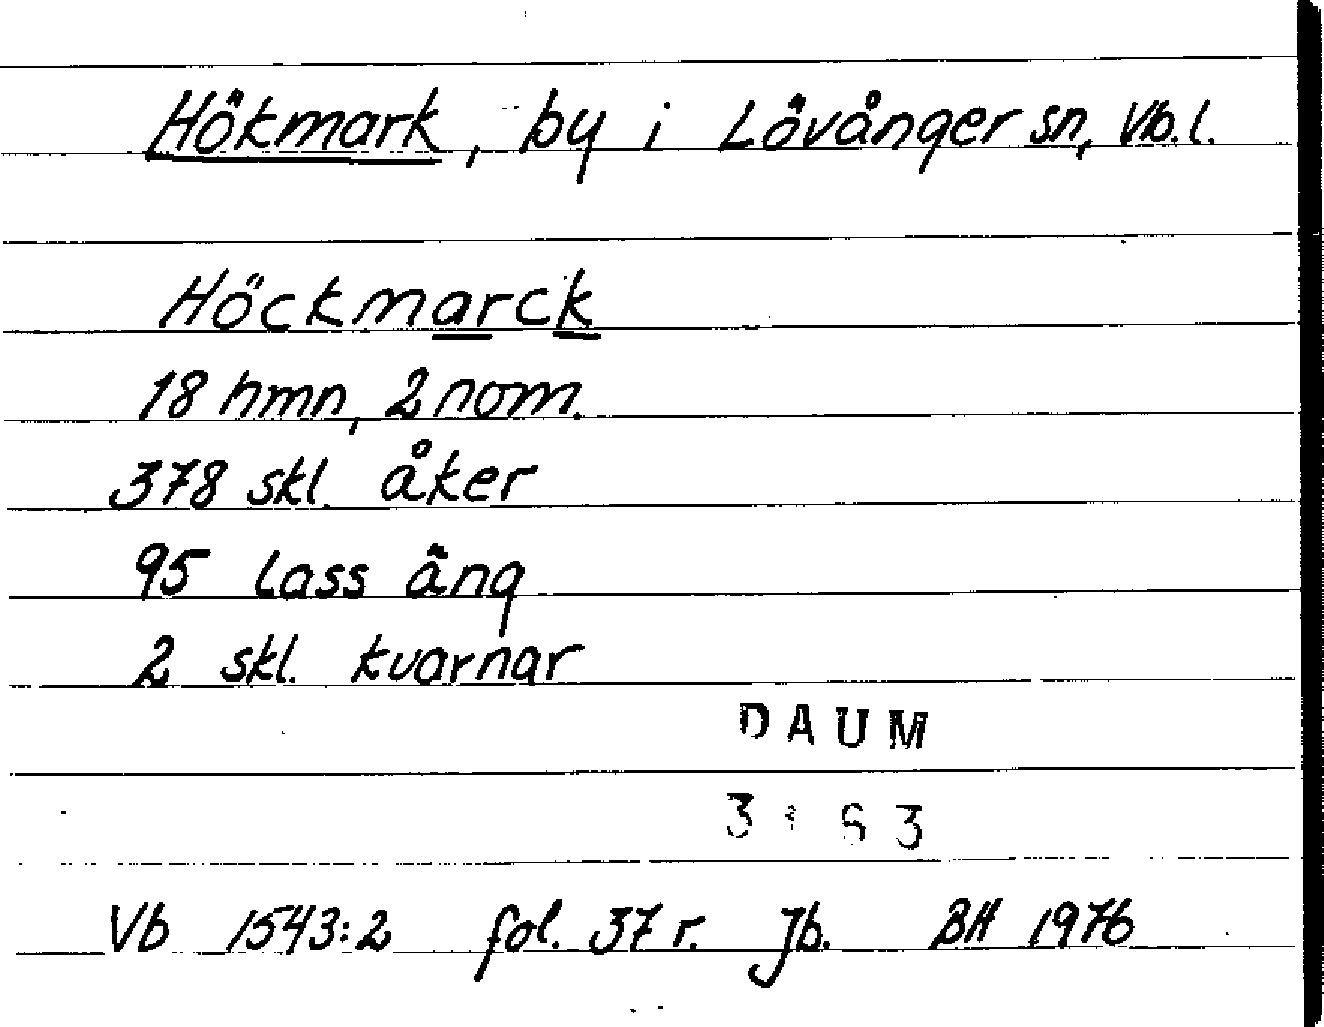 Hökmark, by i Lövånger sn, Vb.l.
Höckmarck
18 hmn, 2 nom.
378 skl. åker
95 lass äng
2 skl. kvarnar
DAUM
Vb 1543:2 fol. 37 r. Jb. BH 1976